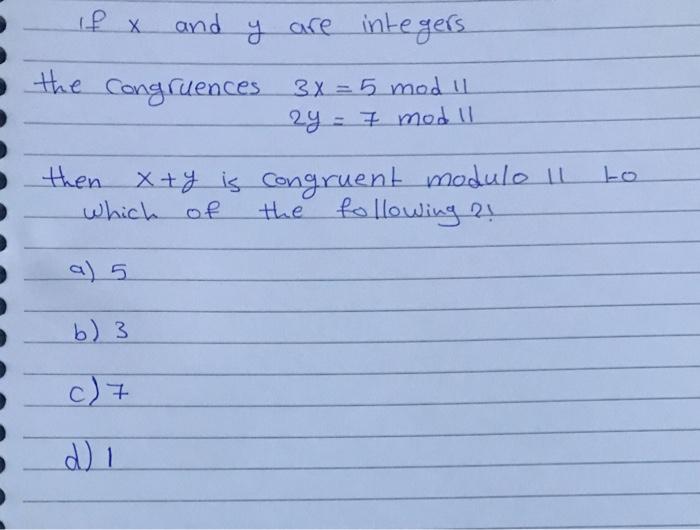 if x and y are integers
the congruences 3x = 5 mod 11
2y = 7 mod 11
then x+y is congruent modulo 11 to
which of the following ?!
a) 5
b) 3
c) 7
d) 1